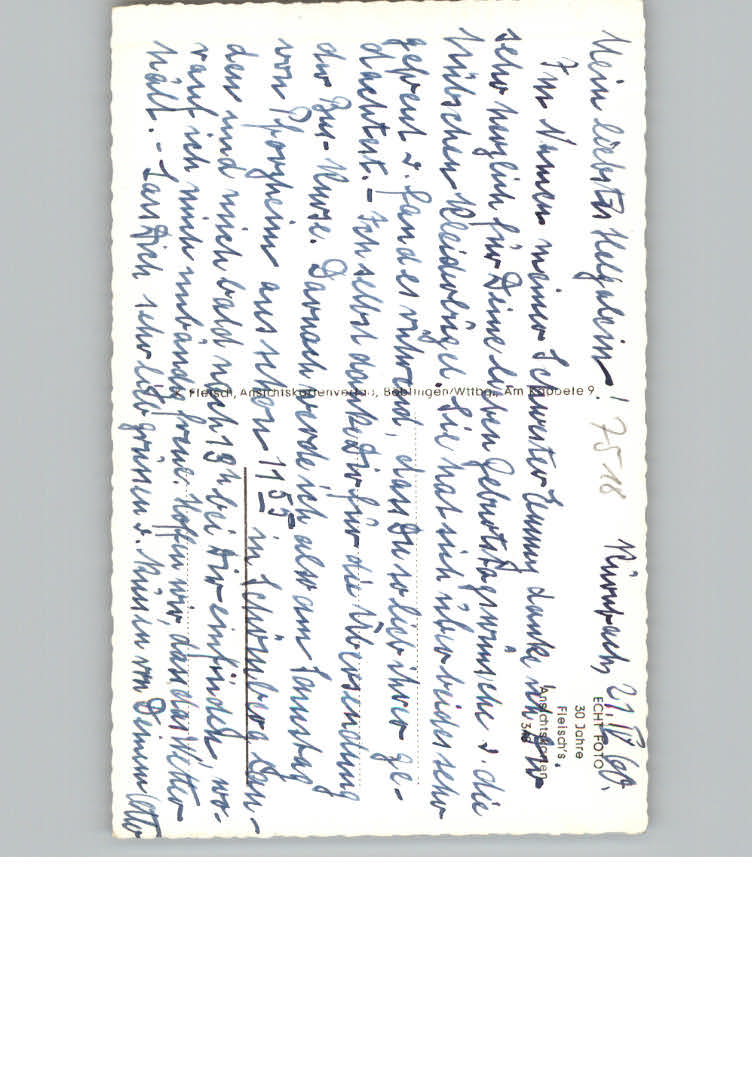 Mein liebstes Helgalein! 7518 Kürnbach, 21.IV.60.
Im Namen meiner Schwester Emmy danke ich Dir
sehr herzlich für Deine lieben Geburtstagswünsche u. die
hübschen Kleiderbügel. Sie hat sich über beides sehr
gefreut u. fand es rührend, dass Du so lieb ihrer ge-
dachtest. - Ich selbst danke Dir für die Übersendung
der Kurse. Darnach werde ich also am Samstag
von Pforzheim aus schon 11 55 in Schömberg lan-
den und mich bald nach 13 h bei Dir einfinden, wo-
rauf ich mich unbändig freue. Hoffen wir, dass das Wetter
hält. - Lass Dich sehr lieb grüssen u. küssen von Deinem Otto
ECHT FOTO
30 Jahre
Fleisch's
Ansichtskarten
Fleisch, Ansichtskartenverlag, Böblingen/Wttbg., Am Käppele 9